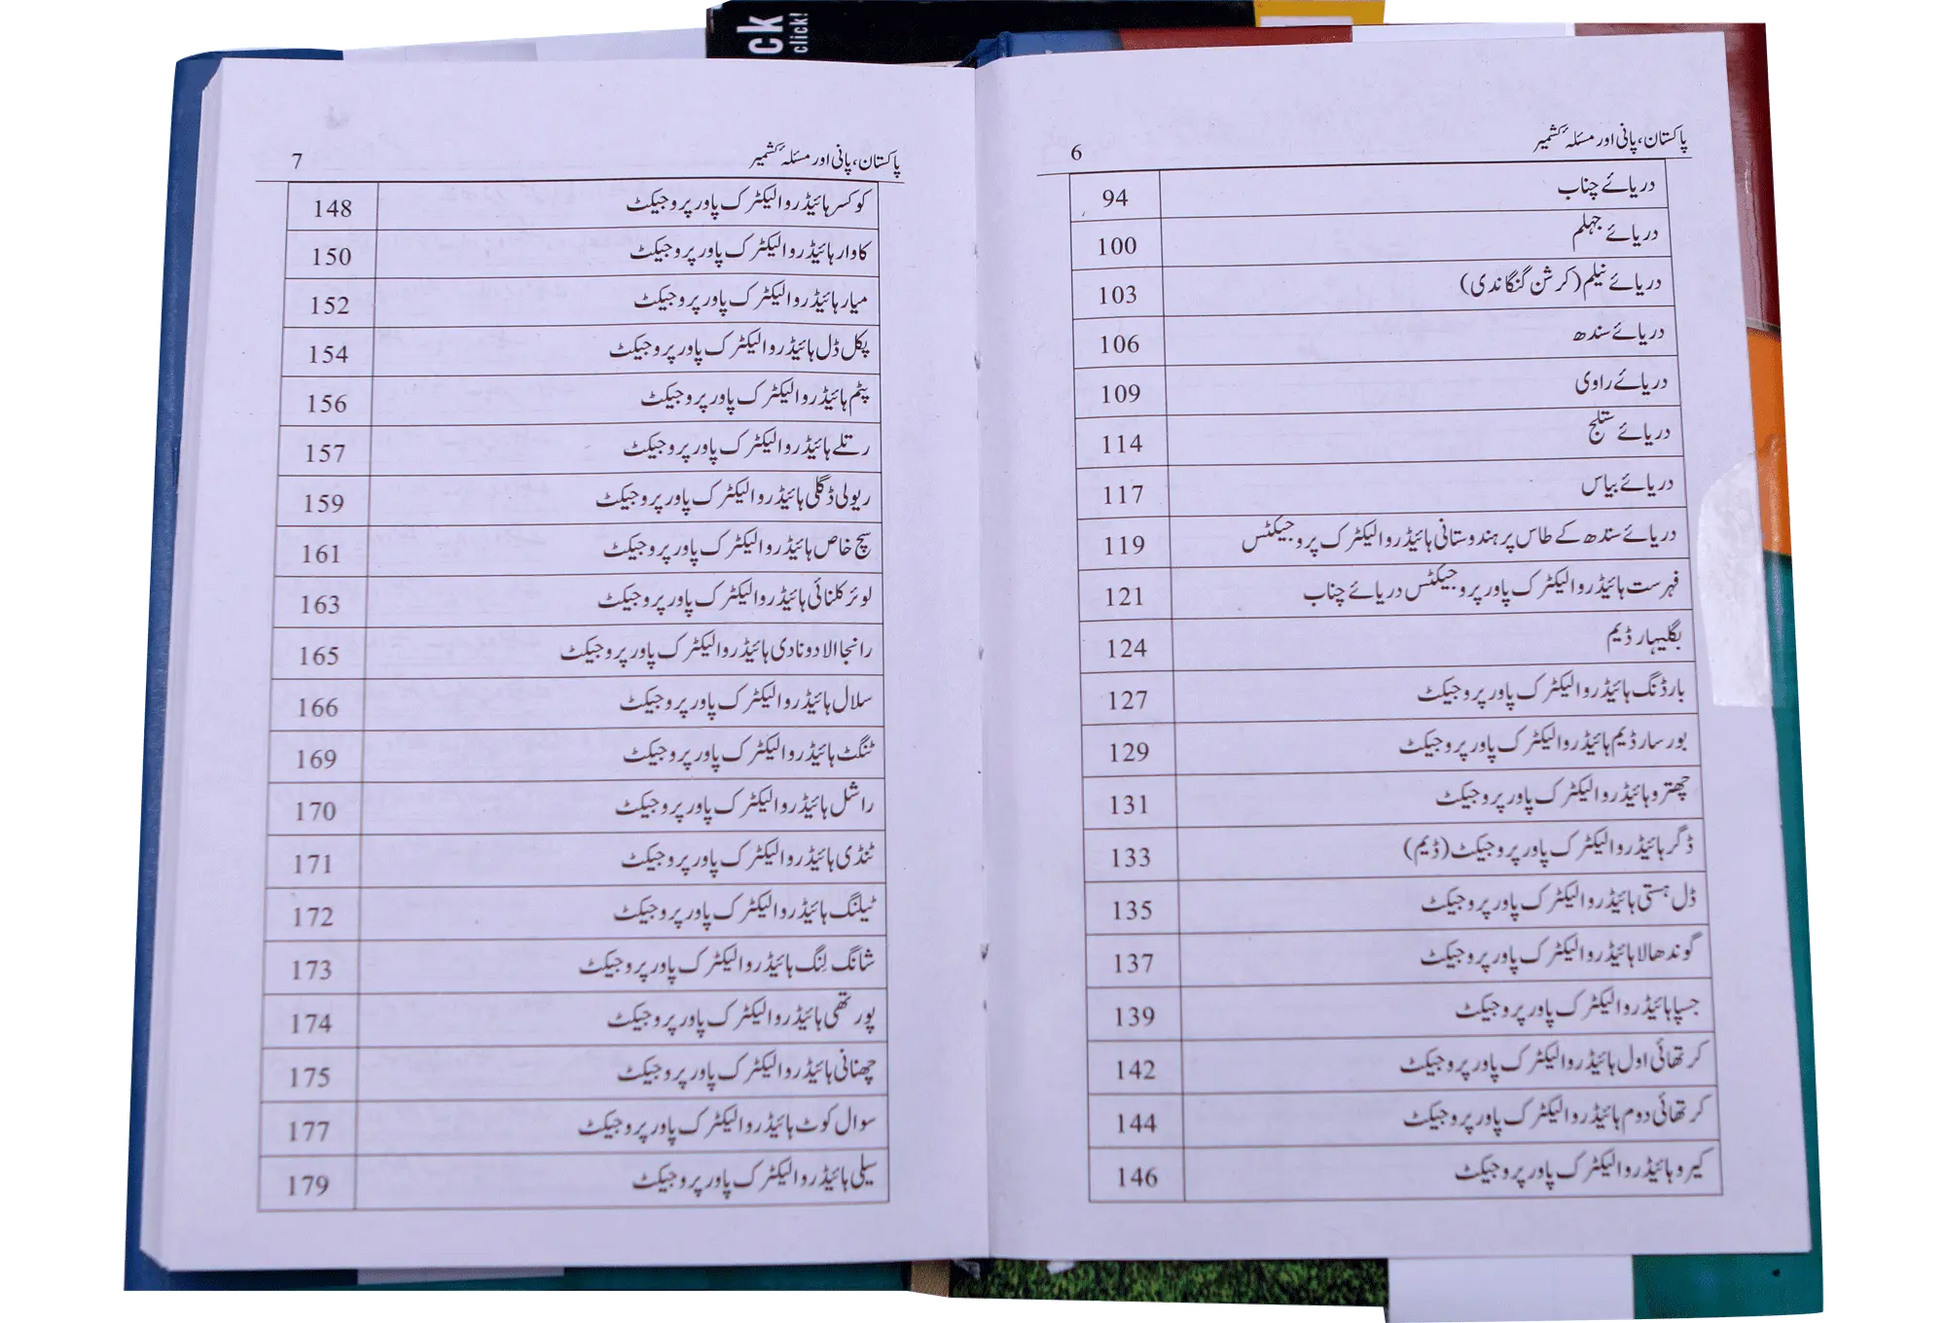 ck
click!
پاکستان، پانی اور مسئلہ کشمیر 6
دریائے چناب 94
دریائے جہلم 100
دریائے نیلم (کرشن گنگا ندی) 103
دریائے سندھ 106
دریائے راوی 109
دریائے ستلج 114
دریائے بیاس 117
دریائے سندھ کے طاس پر ہندوستانی ہائیڈرو الیکٹرک پروجیکٹس 119
فہرست ہائیڈرو الیکٹرک پاور پروجیکٹس دریائے چناب 121
بگلیہار ڈیم 124
بارڈنگ ہائیڈرو الیکٹرک پاور پروجیکٹ 127
بورسار ڈیم ہائیڈرو الیکٹرک پاور پروجیکٹ 129
چھترو ہائیڈرو الیکٹرک پاور پروجیکٹ 131
ڈگر ہائیڈرو الیکٹرک پاور پروجیکٹ (ڈیم) 133
ڈل ہستی ہائیڈرو الیکٹرک پاور پروجیکٹ 135
گوندھالا ہائیڈرو الیکٹرک پاور پروجیکٹ 137
جسپا ہائیڈرو الیکٹرک پاور پروجیکٹ 139
کرتھائی اول ہائیڈرو الیکٹرک پاور پروجیکٹ 142
کرتھائی دوم ہائیڈرو الیکٹرک پاور پروجیکٹ 144
کیرو ہائیڈرو الیکٹرک پاور پروجیکٹ 146
پاکستان، پانی اور مسئلہ کشمیر 7
کوکسر ہائیڈرو الیکٹرک پاور پروجیکٹ 148
کاوار ہائیڈرو الیکٹرک پاور پروجیکٹ 150
میار ہائیڈرو الیکٹرک پاور پروجیکٹ 152
پکل ڈل ہائیڈرو الیکٹرک پاور پروجیکٹ 154
پٹم ہائیڈرو الیکٹرک پاور پروجیکٹ 156
رتلے ہائیڈرو الیکٹرک پاور پروجیکٹ 157
ریولی ڈگلی ہائیڈرو الیکٹرک پاور پروجیکٹ 159
سچ خاص ہائیڈرو الیکٹرک پاور پروجیکٹ 161
لوئر کلنائی ہائیڈرو الیکٹرک پاور پروجیکٹ 163
رانجا الا دونادی ہائیڈرو الیکٹرک پاور پروجیکٹ 165
سلال ہائیڈرو الیکٹرک پاور پروجیکٹ 166
ٹنگٹ ہائیڈرو الیکٹرک پاور پروجیکٹ 169
راشل ہائیڈرو الیکٹرک پاور پروجیکٹ 170
ٹنڈی ہائیڈرو الیکٹرک پاور پروجیکٹ 171
ٹیلنگ ہائیڈرو الیکٹرک پاور پروجیکٹ 172
شانگ لنگ ہائیڈرو الیکٹرک پاور پروجیکٹ 173
پورتھی ہائیڈرو الیکٹرک پاور پروجیکٹ 174
چھنانی ہائیڈرو الیکٹرک پاور پروجیکٹ 175
سوال کوٹ ہائیڈرو الیکٹرک پاور پروجیکٹ 177
سیلی ہائیڈرو الیکٹرک پاور پروجیکٹ 179